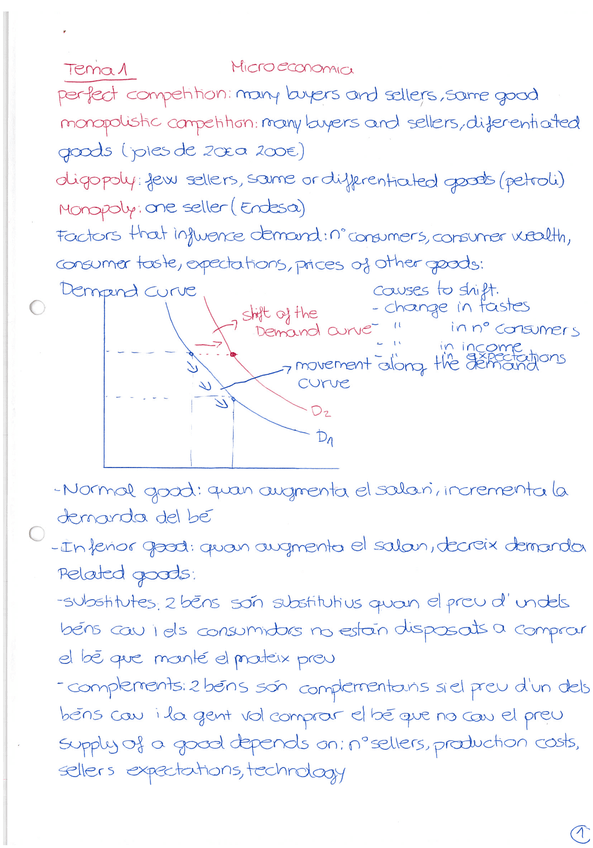 Tema 1 Microeconomia
perfect competition: many buyers and sellers, same good
monopolistic competition: many buyers and sellers, diferentiated
goods (joies de 20€ a 200€)
oligopoly: few sellers, same or differentiated goods (petroli)
Monopoly: one seller (Endesa)
Factors that influence demand: nº consumers, consumer wealth,
consumer taste, expectations, prices of other goods:
Demand curve
causes to shift:
- change in tastes
- " in nº consumers
- " in income
- " in expectations
shift of the
Demand curve
movement along the demand
curve
D2
D1
- Normal good: quan augmenta el salari, incrementa la
demanda del bé
- Inferior good: quan augmenta el salari, decreix demanda
Related goods:
- substitutes, 2 béns són substitutius quan el preu d'un dels
béns cau i els consumidors no estan disposats a comprar
el bé que manté el mateix preu
- complements: 2 béns són complementaris si el preu d'un dels
béns cau i la gent vol comprar el bé que no cau el preu
supply of a good depends on: nº sellers, production costs,
sellers expectations, technology
1